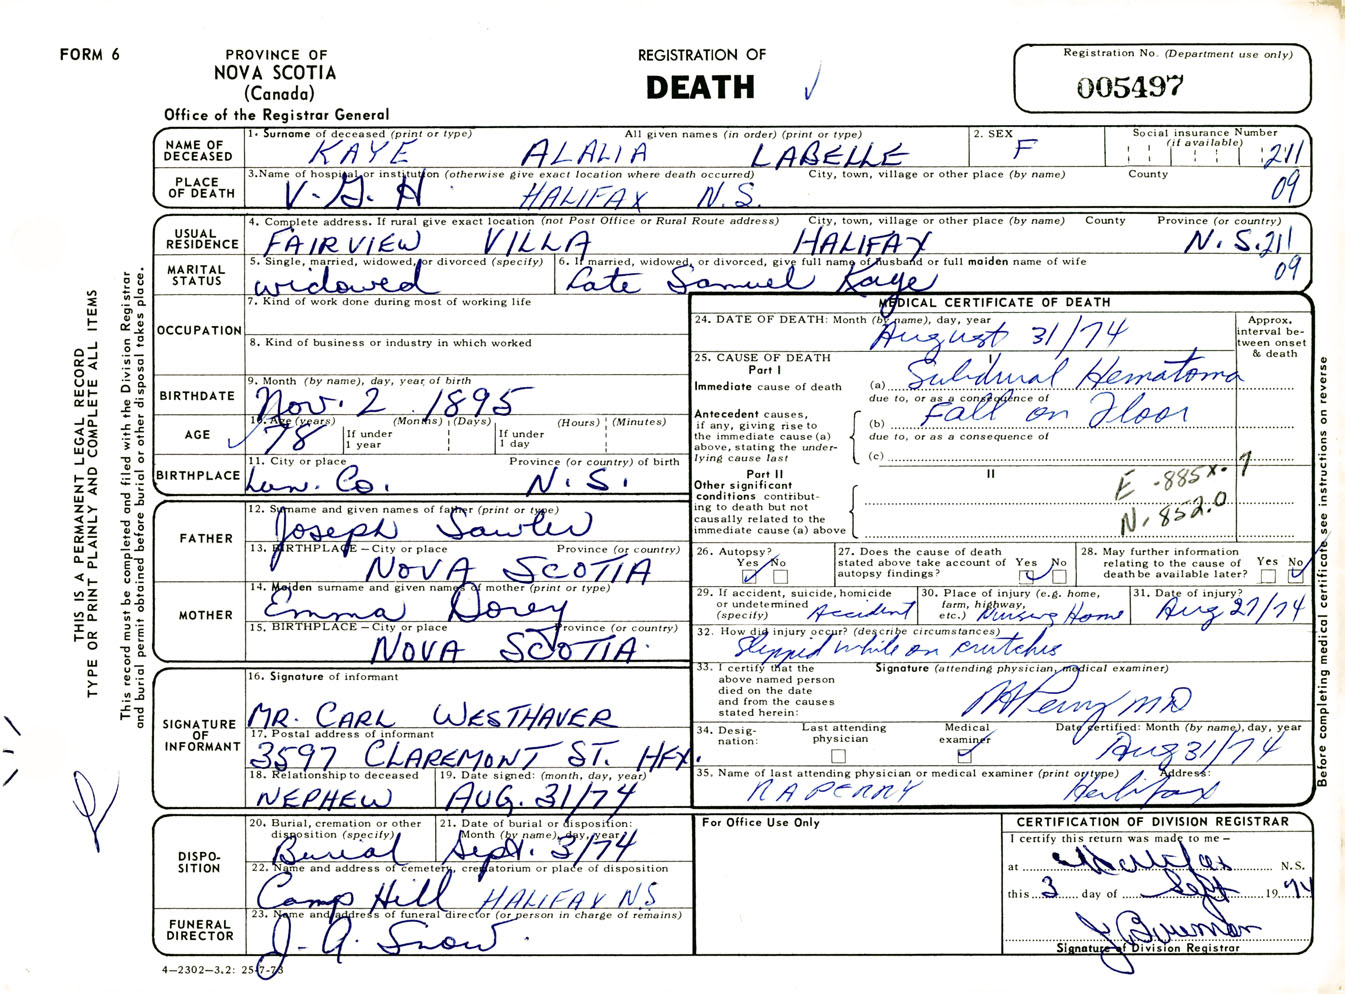 FORM 6
PROVINCE OF
NOVA SCOTIA
(Canada)
Office of the Registrar General
REGISTRATION OF
DEATH
Registration No. (Department use only)
005497
THIS IS A PERMANENT LEGAL RECORD
TYPE OR PRINT PLAINLY AND COMPLETE ALL ITEMS
This record must be completed and filed with the Division Registrar
and burial permit obtained before burial or other disposal takes place.
NAME OF
DECEASED
1. Surname of deceased (print or type) All given names (in order) (print or type)
KAYE ALALIA LABELLE
2. SEX
F
Social insurance Number
(if available)
211
PLACE
OF DEATH
3.Name of hospital or institution (otherwise give exact location where death occurred) City, town, village or other place (by name) County
V. G. H HALIFAX N.S.
09
USUAL
RESIDENCE
4. Complete address. If rural give exact location (not Post Office or Rural Route address) City, town, village or other place (by name) County Province (or country)
FAIRVIEW VILLA HALIFAX N.S. 211
MARITAL
STATUS
5. Single, married, widowed, or divorced (specify)
widowed
6. If married, widowed, or divorced, give full name of husband or full maiden name of wife
Late Samuel Kaye
09
OCCUPATION
7. Kind of work done during most of working life
8. Kind of business or industry in which worked
BIRTHDATE
9. Month (by name), day, year of birth
Nov. 2 1895
AGE
10. Age (years) (Months) (Days) (Hours) (Minutes)
78
If under
1 year
If under
1 day
BIRTHPLACE
11. City or place Province (or country) of birth
Lun. Co. N.S.
FATHER
12. Surname and given names of father (print or type)
Joseph Sawler
13. BIRTHPLACE – City or place Province (or country)
NOVA SCOTIA
MOTHER
14. Maiden surname and given names of mother (print or type)
Emma Dorey
15. BIRTHPLACE – City or place Province (or country)
NOVA SCOTIA.
SIGNATURE
OF
INFORMANT
16. Signature of informant
MR. CARL WESTHAVER
17. Postal address of informant
3597 CLAREMONT ST. HFX.
18. Relationship to deceased
NEPHEW
19. Date signed: (month, day, year)
AUG. 31/74
DISPO-
SITION
20. Burial, cremation or other
disposition (specify)
Burial
21. Date of burial or disposition:
Month (by name), day, year
Sept. 3/74
22. Name and address of cemetery, crematorium or place of disposition
Camp Hill HALIFAX NS
FUNERAL
DIRECTOR
23. Name and address of funeral director (or person in charge of remains)
J. A. Snow.
4–2302–3.2: 25-7-73
MEDICAL CERTIFICATE OF DEATH
24. DATE OF DEATH: Month (by name), day, year
August 31/74
Approx.
interval be-
tween onset
& death
25. CAUSE OF DEATH
Part I
I
Immediate cause of death
(a) Subdural Hematoma
due to, or as a consequence of
Antecedent causes,
if any, giving rise to
the immediate cause (a)
above, stating the under-
lying cause last
(b) Fall on Floor
due to, or as a consequence of
(c)
Part II
II
Other significant
conditions contribut-
ing to death but not
causally related to the
immediate cause (a) above
E -885X. 7
N. 852.0
26. Autopsy?
Yes No
27. Does the cause of death
stated above take account of
autopsy findings?
Yes No
28. May further information
relating to the cause of
death be available later?
Yes No
29. If accident, suicide, homicide
or undetermined
(specify)
Accident
30. Place of injury (e.g. home,
farm, highway,
etc.)
Nursing Home
31. Date of injury?
Aug 27/74
32. How did injury occur? (describe circumstances)
Slipped while on crutches
33. I certify that the
above named person
died on the date
and from the causes
stated herein:
Signature (attending physician, medical examiner)
RA Perry MD
34. Desig-
nation:
Last attending
physician
Medical
examiner
Date certified: Month (by name), day, year
Aug 31/74
35. Name of last attending physician or medical examiner (print or type) Address:
R A PERRY Halifax
Before completing medical certificate see instructions on reverse
For Office Use Only
CERTIFICATION OF DIVISION REGISTRAR
I certify this return was made to me –
at Halifax N.S.
this 3 day of Sept 1974
Signature of Division Registrar